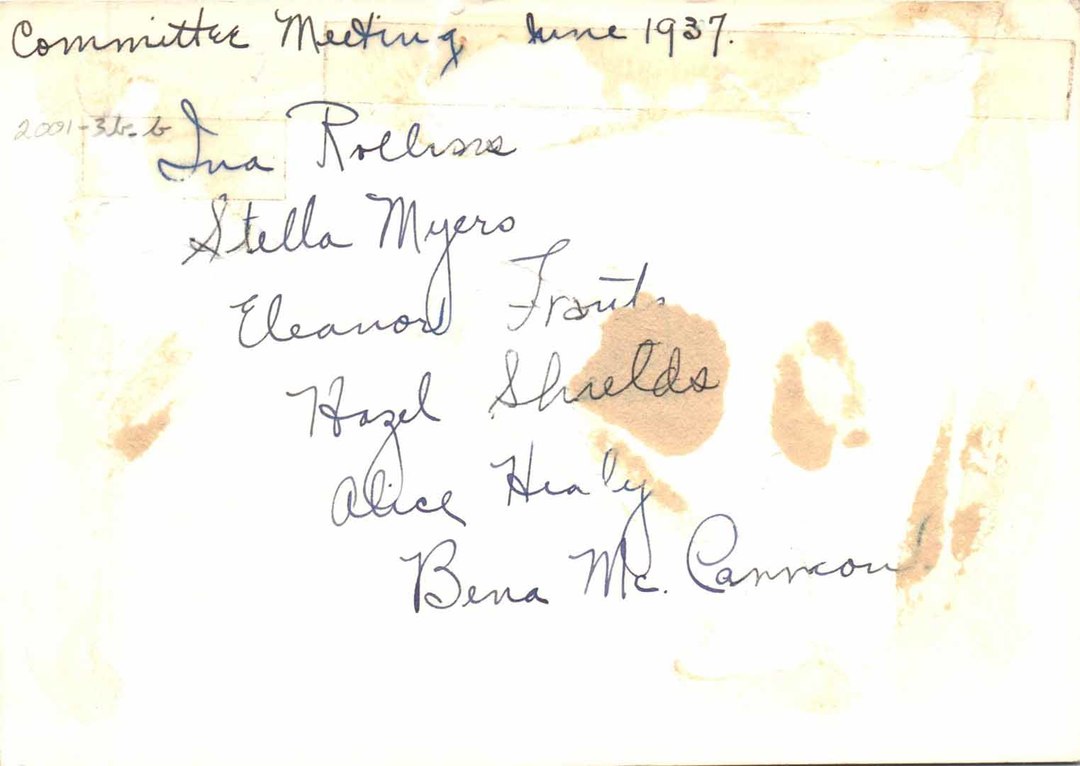 Committee Meeting June 1937.
2001-36-6
Ina
Stella Myers
Eleanor
Hazel Shields
Alice Healy
Bena Mc. Cannon